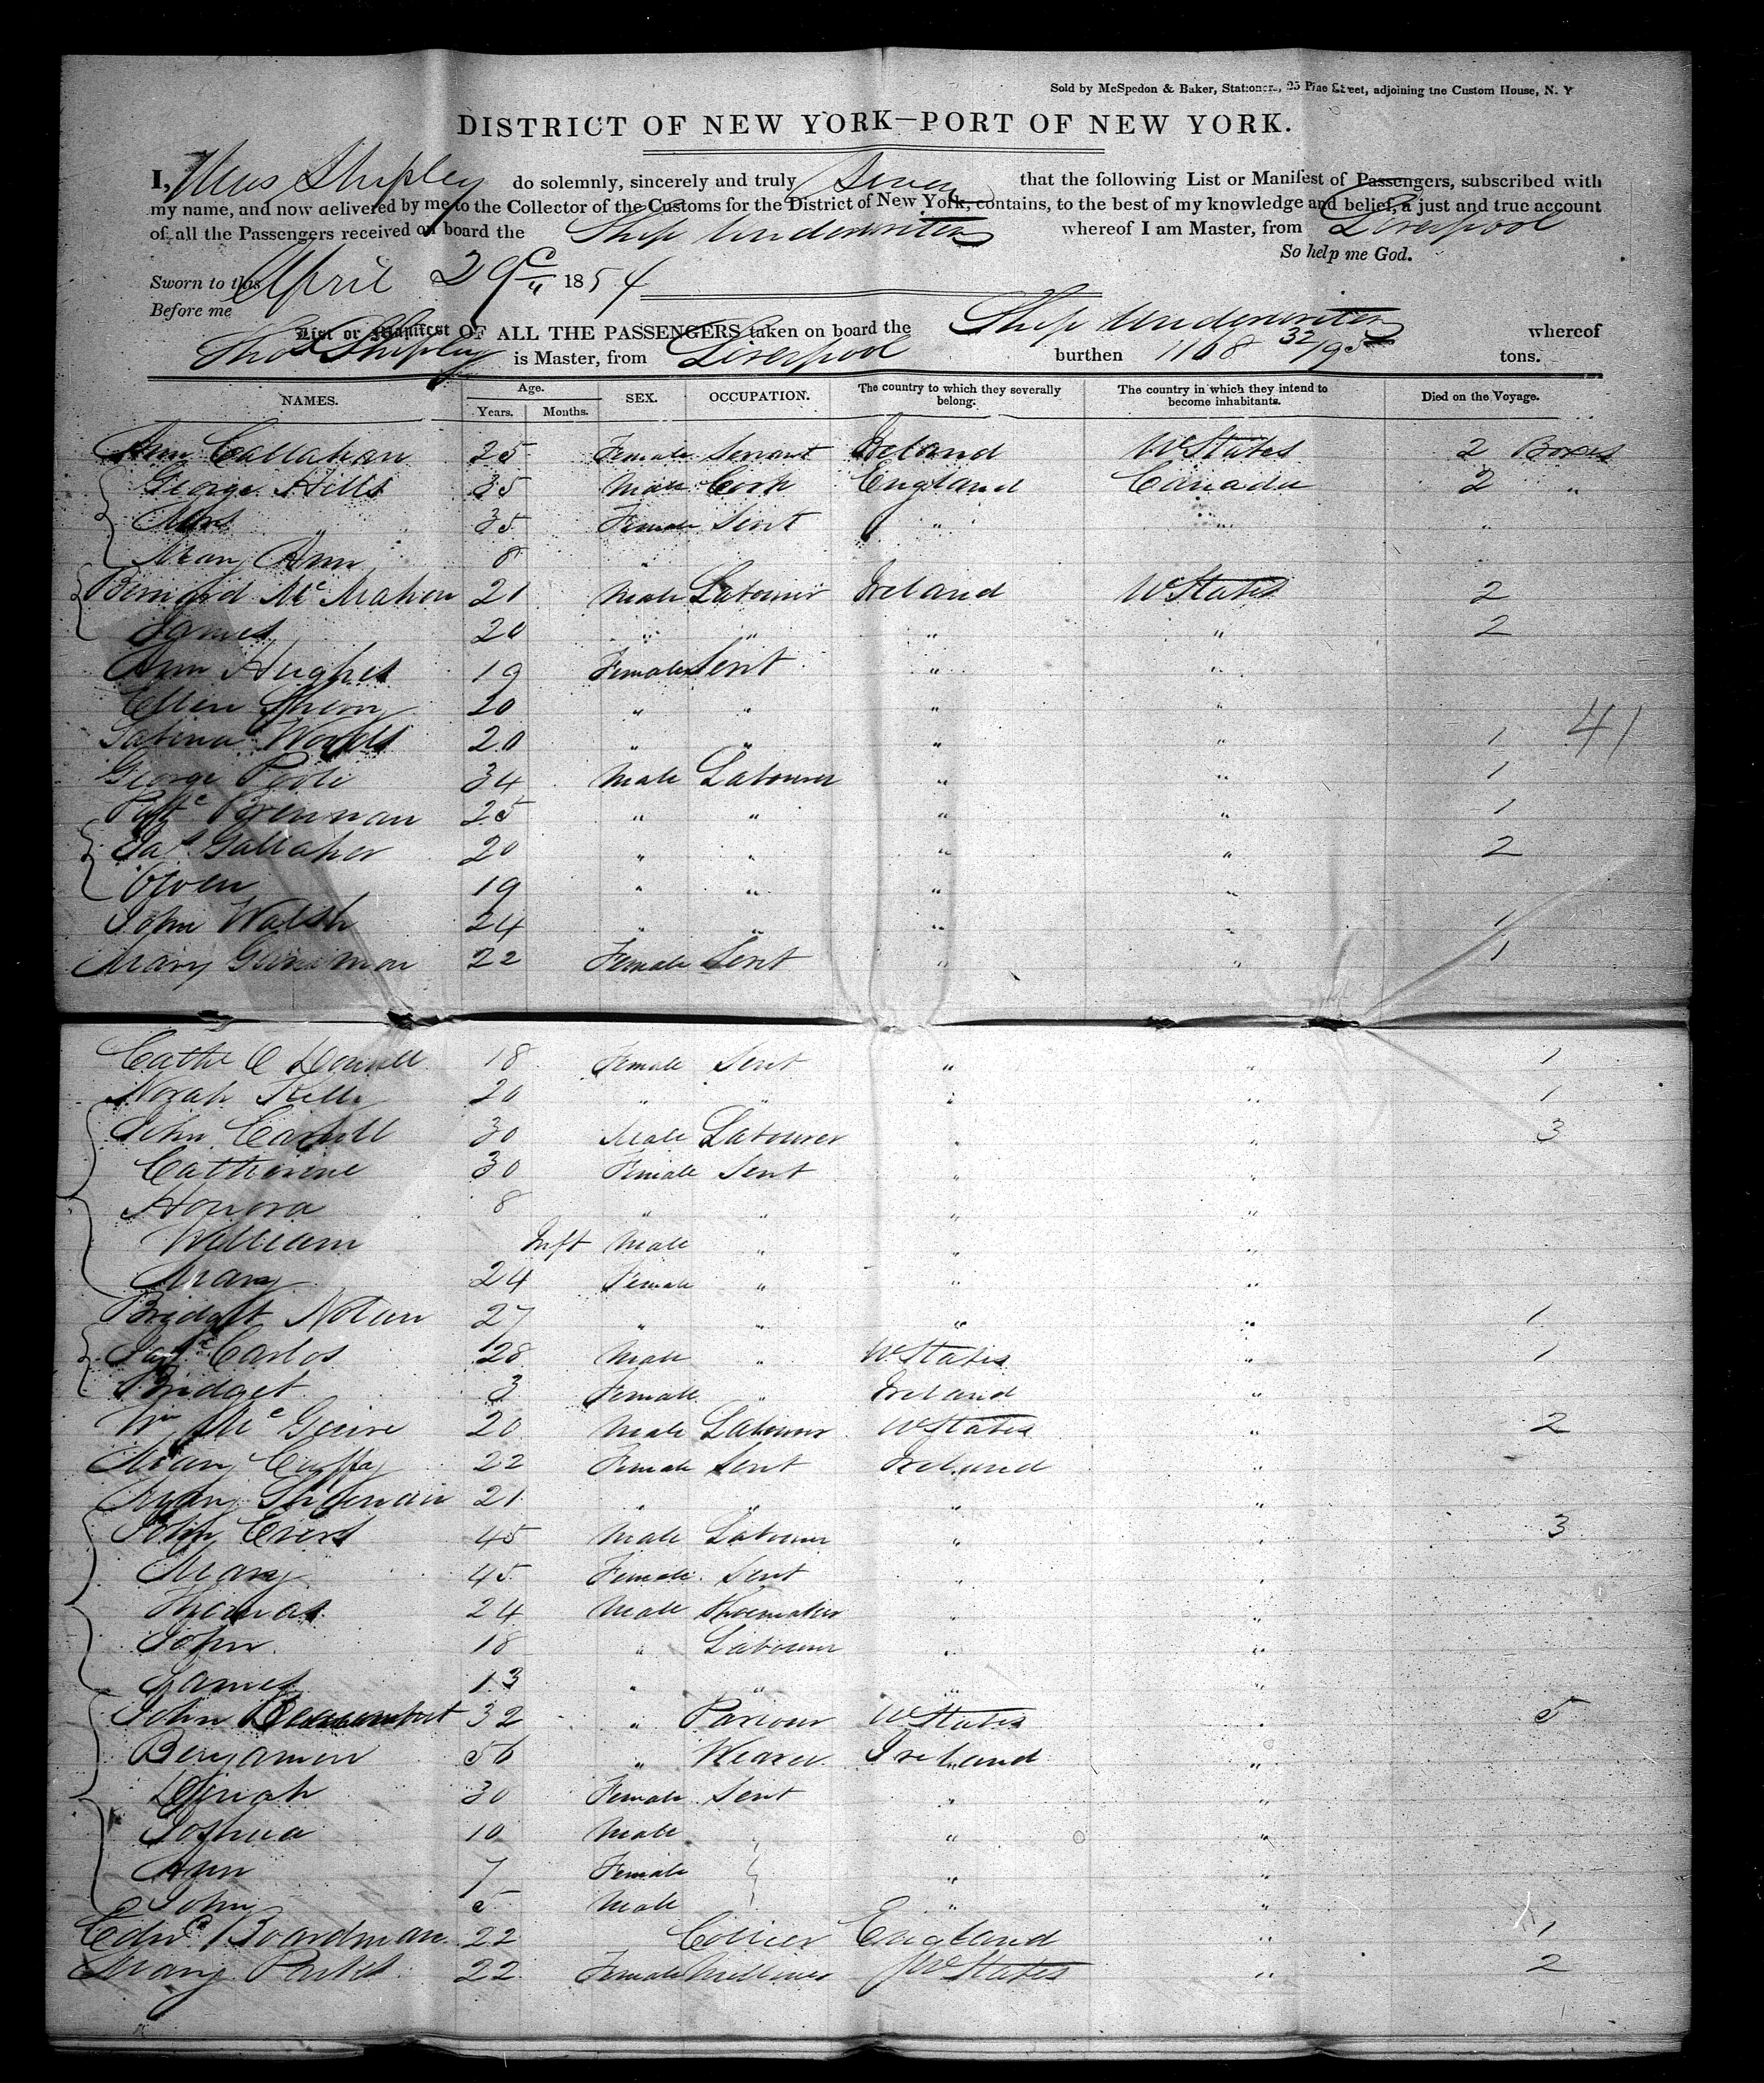 Sold by McSpedon & Baker, Stationers, 25 Pine Street, adjoining the Custom House, N. Y
DISTRICT OF NEW YORK—PORT OF NEW YORK.
I, Thos Shipley do solemnly, sincerely and truly Swear that the following List or Manifest of Passengers, subscribed with
my name, and now delivered by me to the Collector of the Customs for the District of New York, contains, to the best of my knowledge and belief, a just and true account
of all the Passengers received on board the Ship Underwriter whereof I am Master, from Liverpool
So help me God.
Sworn to this April 29 1854
Before me
List or Manifest OF ALL THE PASSENGERS taken on board the Ship Underwriter whereof
Thos Shipley is Master, from Liverpool burthen 1168 32/95 tons.
NAMES. Age. Years. Months. SEX. OCCUPATION. The country to which they severally belong. The country in which they intend to become inhabitants. Died on the Voyage.
Ann Callahan 25 Female Servant Ireland UStates 2 Boxes
George Hills 35 Male England Canada 2 "
Mrs " 35 Female Sent " " "
Mary Ann 8 "
Bernard McMahon 21 Male Labourer Ireland UStates 2
James 20 " " " " 2
Ann Hughes 19 Female Sent " "
Ellen 20 " " " "
Sabina Woods 20 " " " " 1 41
George Poole 34 Male Labourer " " 1
Patk Brennan 25 " " " " 1
Jas Gallaher 20 " " " " 2
Owen 19 " " " "
John Walsh 24 " " " " 1
Mary 22 Female Sent " " 1
Cathe O 18 Female Sent " " 1
Norah Kelly 20 " " " " 1
John Carroll 30 Male Labourer " " 3
Catherine 30 Female Sent " "
Honora 8 " " " "
William Inft Male " " "
Mary 24 Female " " "
Bridget Nolan 27 " " " " 1
Carlos 28 Male " UStates " 1
Bridget 3 Female " Ireland "
Wm McGuire 20 Male Labourer UStates " 2
Mary Cuffy 22 Female Sent Ireland "
Mary 21 " " " "
John Evers 45 Male Labourer " " 3
Mary 45 Female Sent " "
Thomas 24 Male Shoemaker " "
John 18 " Labourer " "
James 13 " " " "
John 32 " UStates " 5
Benjamin 56 " Weaver Ireland "
30 Female Sent " "
Joshua 10 Male " " "
Ann 7 Female " " "
John 5 Male " " "
Edwd Boardman 22 Collier England " 1
Mary Parkes 22 Female Milliner UStates " 2